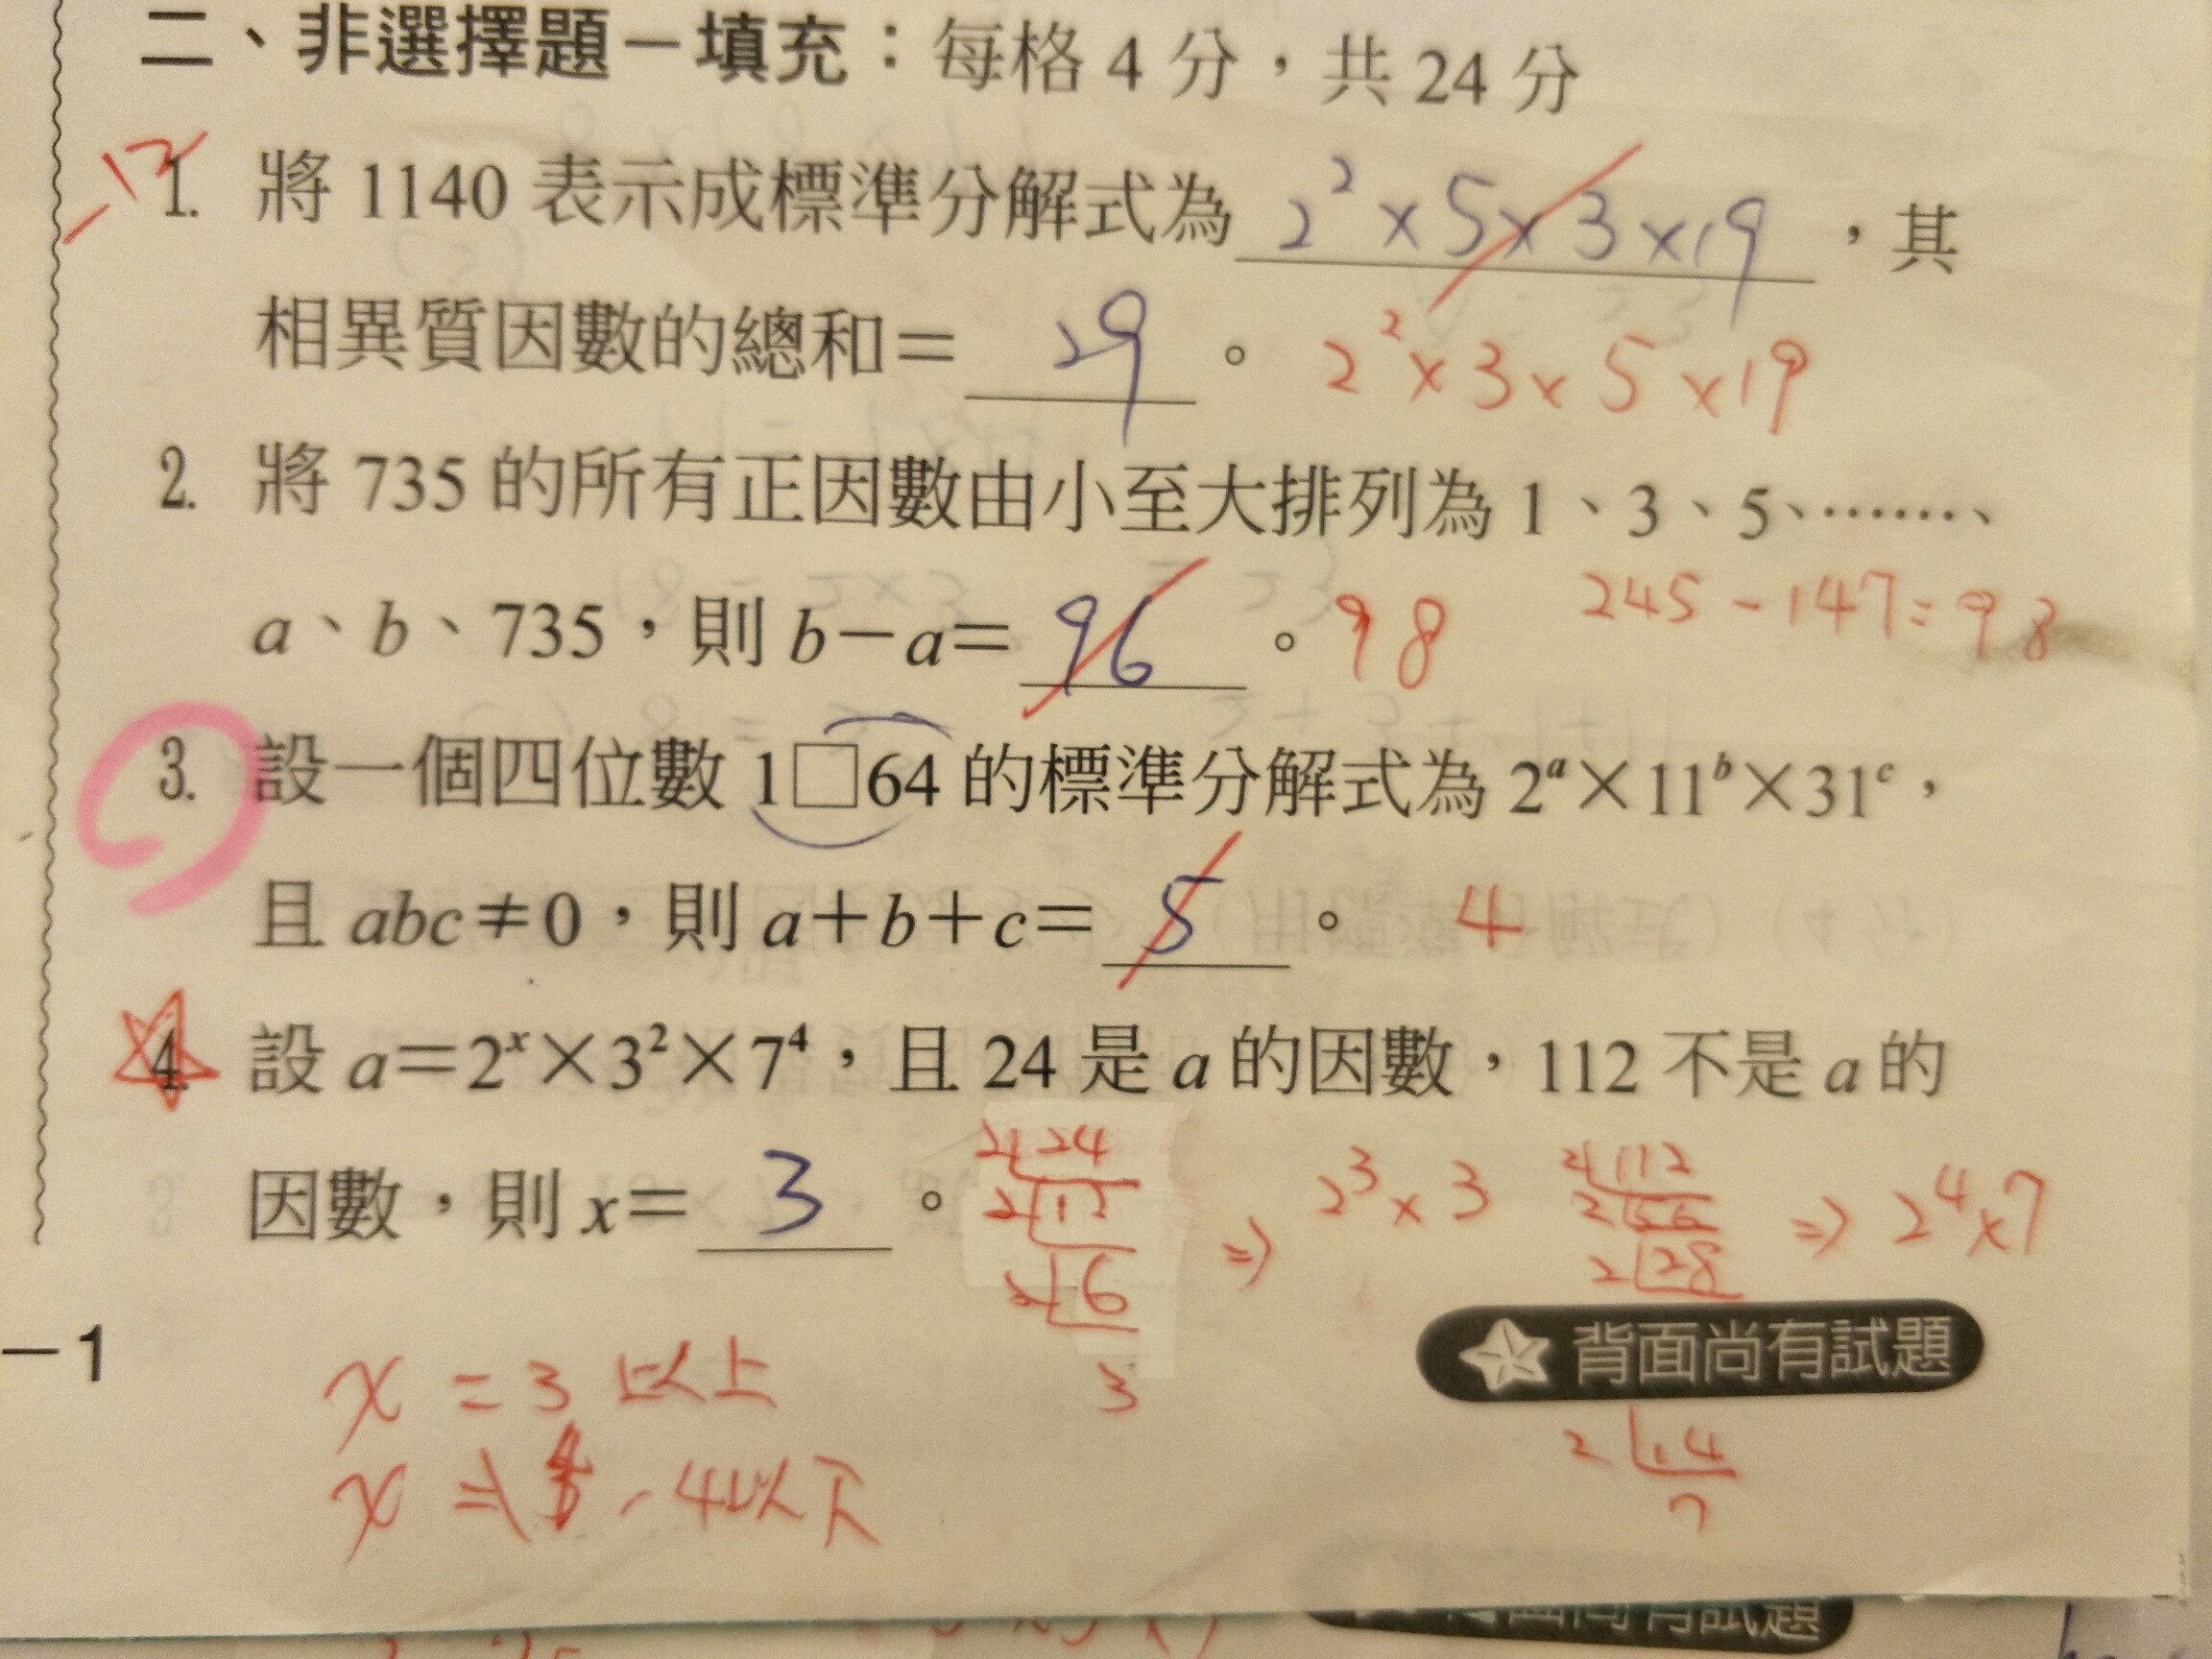 二、非選擇題－填充：每格 4 分，共 24 分
-12
1. 將 1140 表示成標準分解式為 2² × 5 × 3 × 19 ，其
相異質因數的總和＝ 29 。 2² × 3 × 5 × 19
2. 將 735 的所有正因數由小至大排列為 1、3、5、……、
245 - 147 = 98
a、b、735，則 b－a＝ 96 。 98
3. 設一個四位數 1□64 的標準分解式為 2ᵃ×11ᵇ×31ᶜ，
且 abc≠0，則 a＋b＋c＝ 5 。 4
4. 設 a＝2ˣ×3²×7⁴，且 24 是 a 的因數，112 不是 a 的
因數，則 x＝ 3 。
2 24
2 12
2 6
3
⇒ 2³ × 3
2 112
2 56
2 28
2 14
7
⇒ 2⁴ × 7
－1
背面尚有試題
x = 3 以上
4 以下